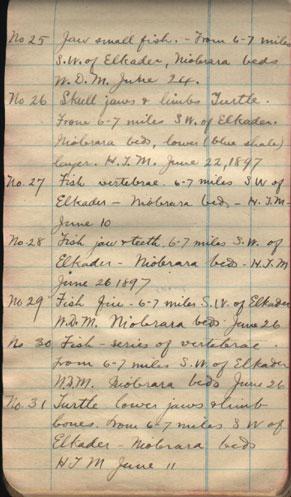 No 25 Jaw small fish. - From 6-7 miles
S.W. of Elkader, Niobrara beds
W.D.M. June 24.
No 26 Skull jaws & limbs Turtle.
From 6-7 miles S.W. of Elkader.
Niobrara beds, lower (blue shale)
layer. H.T.M. June 22, 1897
No. 27 Fish vertebrae. 6-7 miles S.W of
Elkader - Niobrara beds - H.T.M-
June 10
No. 28 Fish jaw & teeth. 6-7 miles S.W. of
Elkader - Niobrara beds - H.T.M
June 26 1897
No. 29 Fish fin - 6-7 miles S.W. of Elkader
W.D.M. Niobrara beds. June 26
No 30 Fish - series of vertebrae.
From 6-7 miles S.W. of Elkader
W.D.M. Niobrara beds June 26
No. 31 Turtle lower jaws & limb
bones. From 6-7 miles S W of
Elkader - Niobrara beds
H T M June 11